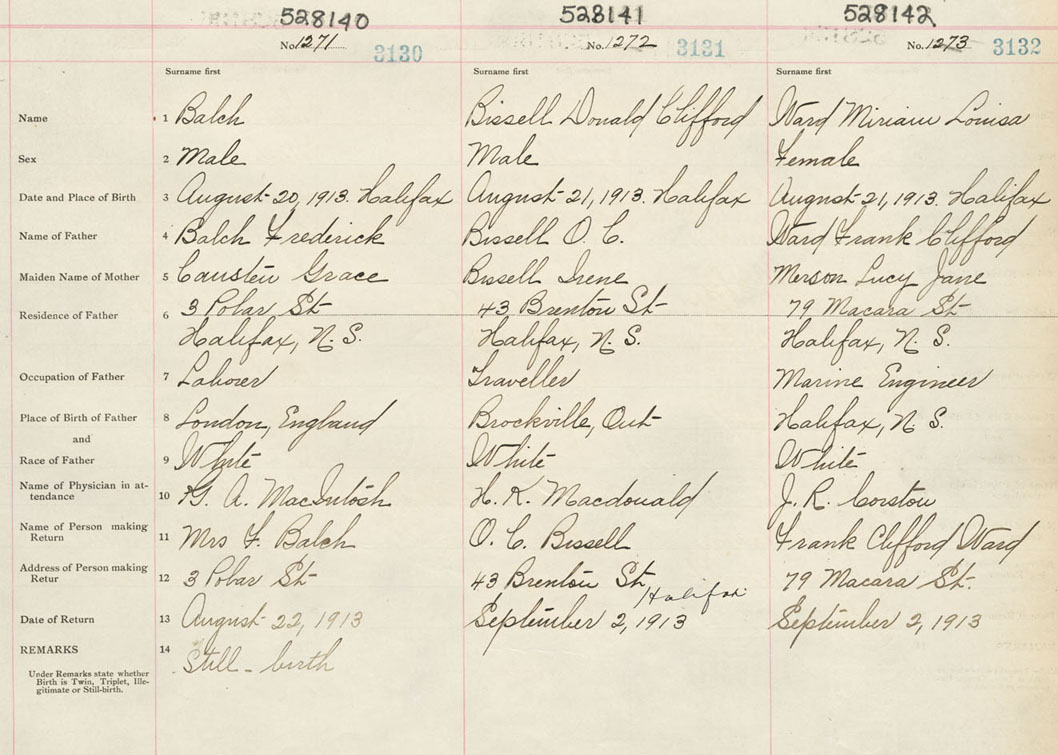 528140 528141 528142
No. 1271 3130 No. 1272 3131 No. 1273 3132
Surname first Surname first Surname first
Name 1 Balch Bissell Donald Clifford Ward Miriam Louisa
Sex 2 Male Male Female
Date and Place of Birth 3 August 20, 1913. Halifax August 21, 1913. Halifax August 21, 1913. Halifax
Name of Father 4 Balch Frederick Bissell O. C. Ward Frank Clifford
Maiden Name of Mother 5 Causten Grace Bissell Irene Merson Lucy Jane
Residence of Father 6 3 Polar St 43 Brenton St 79 Macara St
Halifax, N. S. Halifax, N. S. Halifax, N. S.
Occupation of Father 7 Laborer Traveller Marine Engineer
Place of Birth of Father 8 London, England Brockville, Ont Halifax, N. S.
and
Race of Father 9 White White White
Name of Physician in at-
tendance 10 G. A. MacIntosh H. K. Macdonald J. R. Corston
Name of Person making
Return 11 Mrs F. Balch O. C. Bissell Frank Clifford Ward
Address of Person making
Retur 12 3 Polar St 43 Brenton St, Halifax 79 Macara St.
Date of Return 13 August 22, 1913 September 2, 1913 September 2, 1913
REMARKS 14 Still-birth
Under Remarks state whether
Birth is Twin, Triplet, Ille-
gitimate or Still-birth.